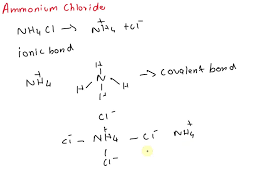 Ammonium Chloride
NH4 Cl → NH4+ + Cl-
ionic bond
H
NH4+ H N+ H → covalent bond
H
Cl-
Cl- - NH4+ - Cl- NH4+
Cl-